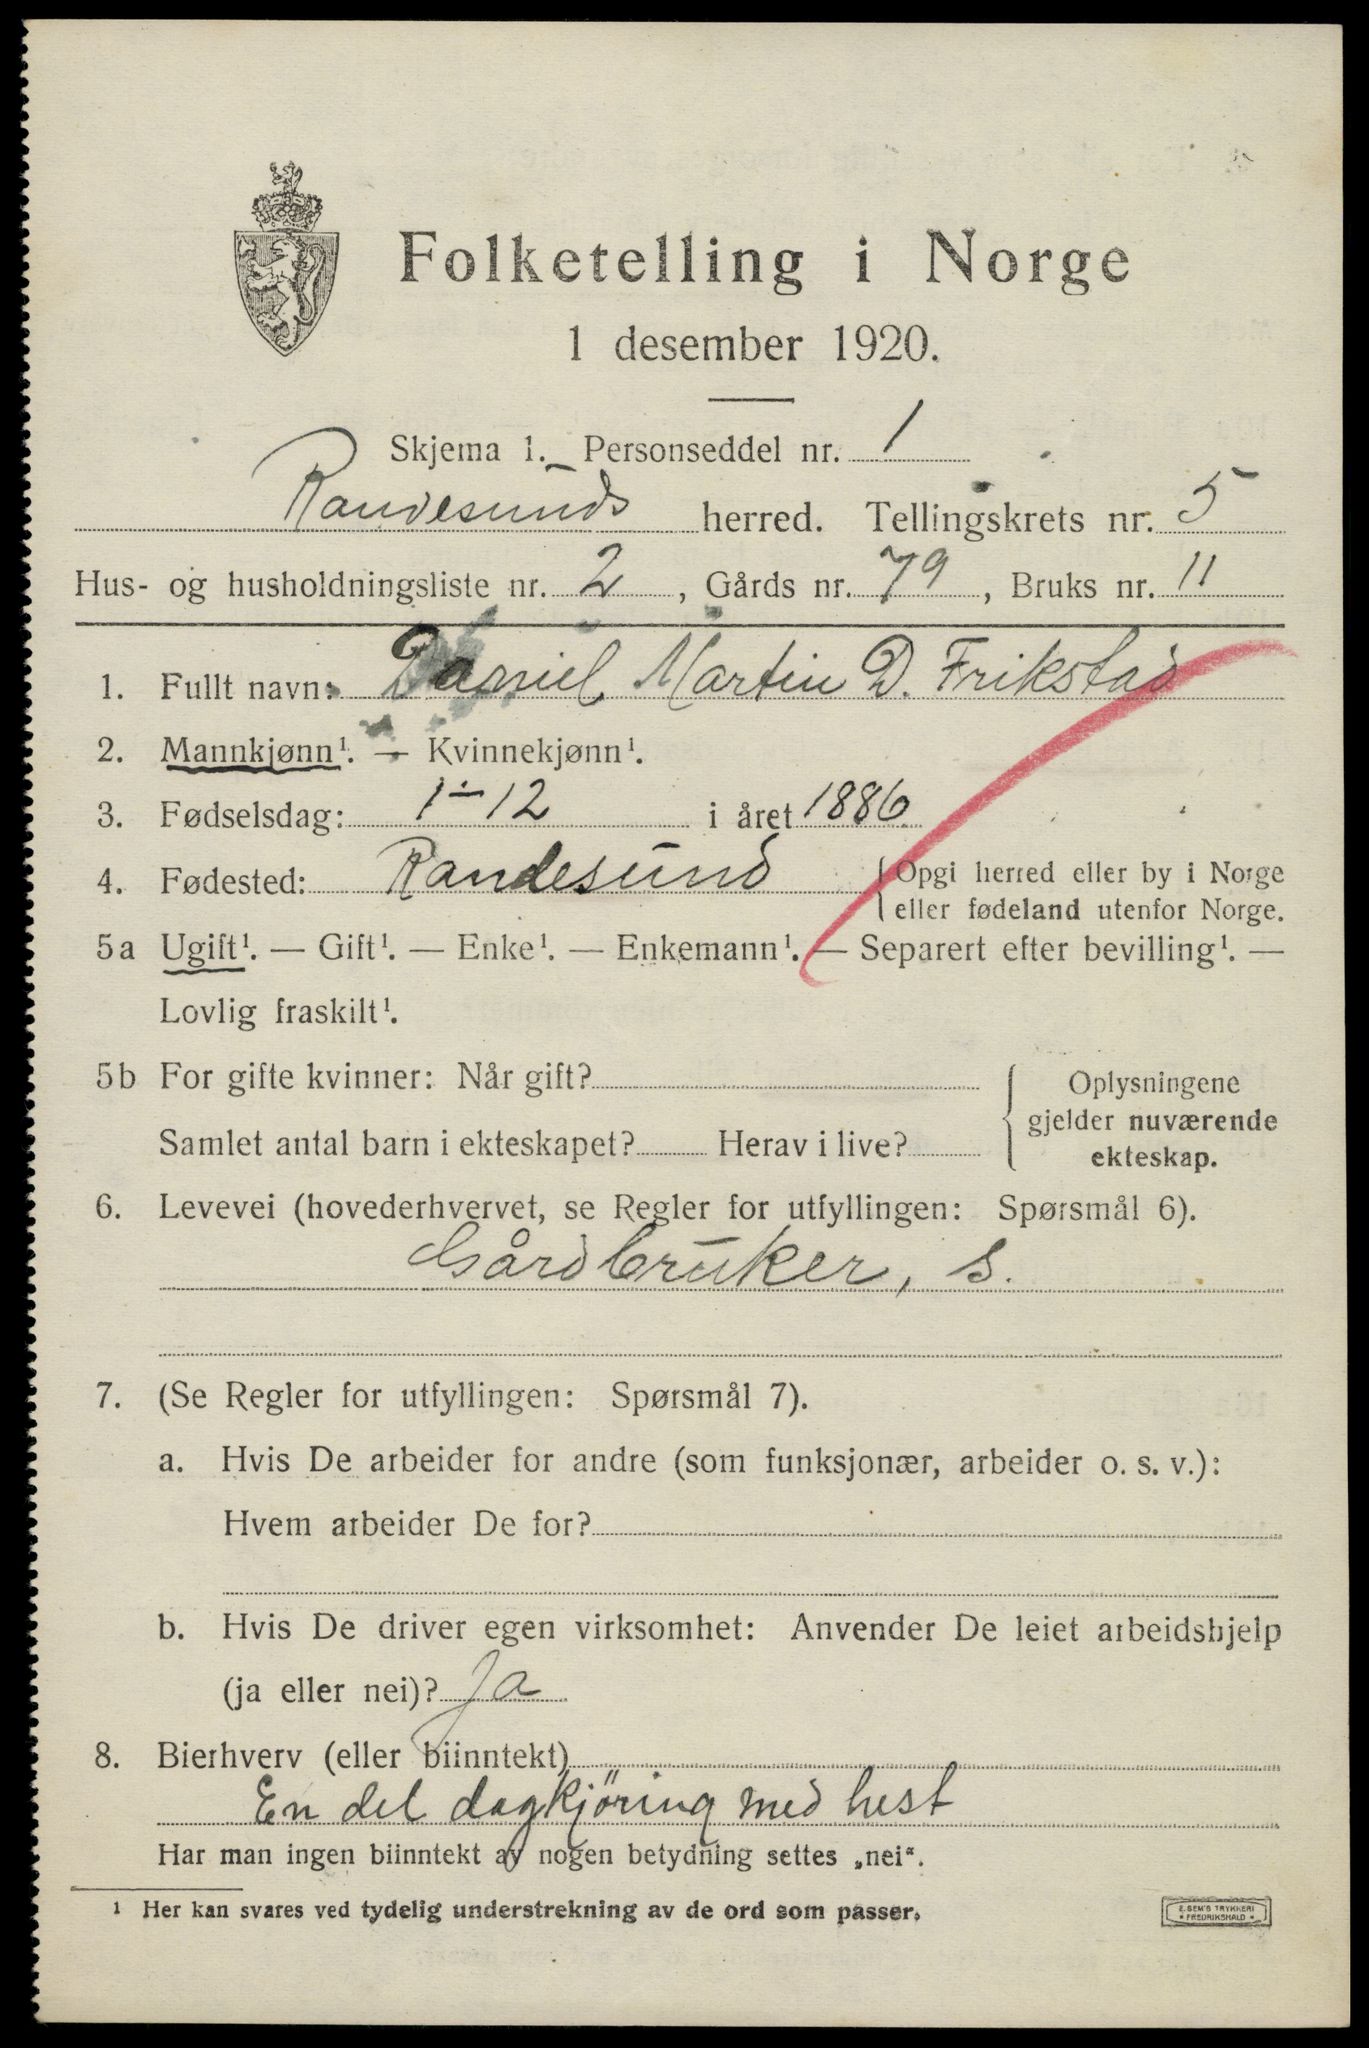 Folketelling i Norge
1 desember 1920.
Skjema 1. Personseddel nr. 1
Randesunds herred. Tellingskrets nr. 5
Hus- og husholdningsliste nr. 2, Gårds nr. 79, Bruks nr. 11
1. Fullt navn: Daniel Martin D. Frikstad
2. Mannkjønn¹. — Kvinnekjønn¹.
3. Fødselsdag: 1-12 i året 1886
4. Fødested: Randesund {Opgi herred eller by i Norge
eller fødeland utenfor Norge.
5a Ugift¹. — Gift¹. — Enke¹. — Enkemann¹. — Separert efter bevilling¹. —
Lovlig fraskilt¹.
5b For gifte kvinner: Når gift?
Samlet antal barn i ekteskapet? Herav i live?
{Oplysningene
gjelder nuværende
ekteskap.
6. Levevei (hovederhvervet, se Regler for utfyllingen: Spørsmål 6).
Gårdbruker, s.
7. (Se Regler for utfyllingen: Spørsmål 7).
a. Hvis De arbeider for andre (som funksjonær, arbeider o. s. v.):
Hvem arbeider De for?
b. Hvis De driver egen virksomhet: Anvender De leiet arbeidshjelp
(ja eller nei)? Ja
8. Bierhverv (eller biinntekt)
En del dagkjöring med hest
Har man ingen biinntekt av nogen betydning settes „nei“.
¹ Her kan svares ved tydelig understrekning av de ord som passer.
E. SEM'S TRYKKERI
• FREDRIKSHALD •